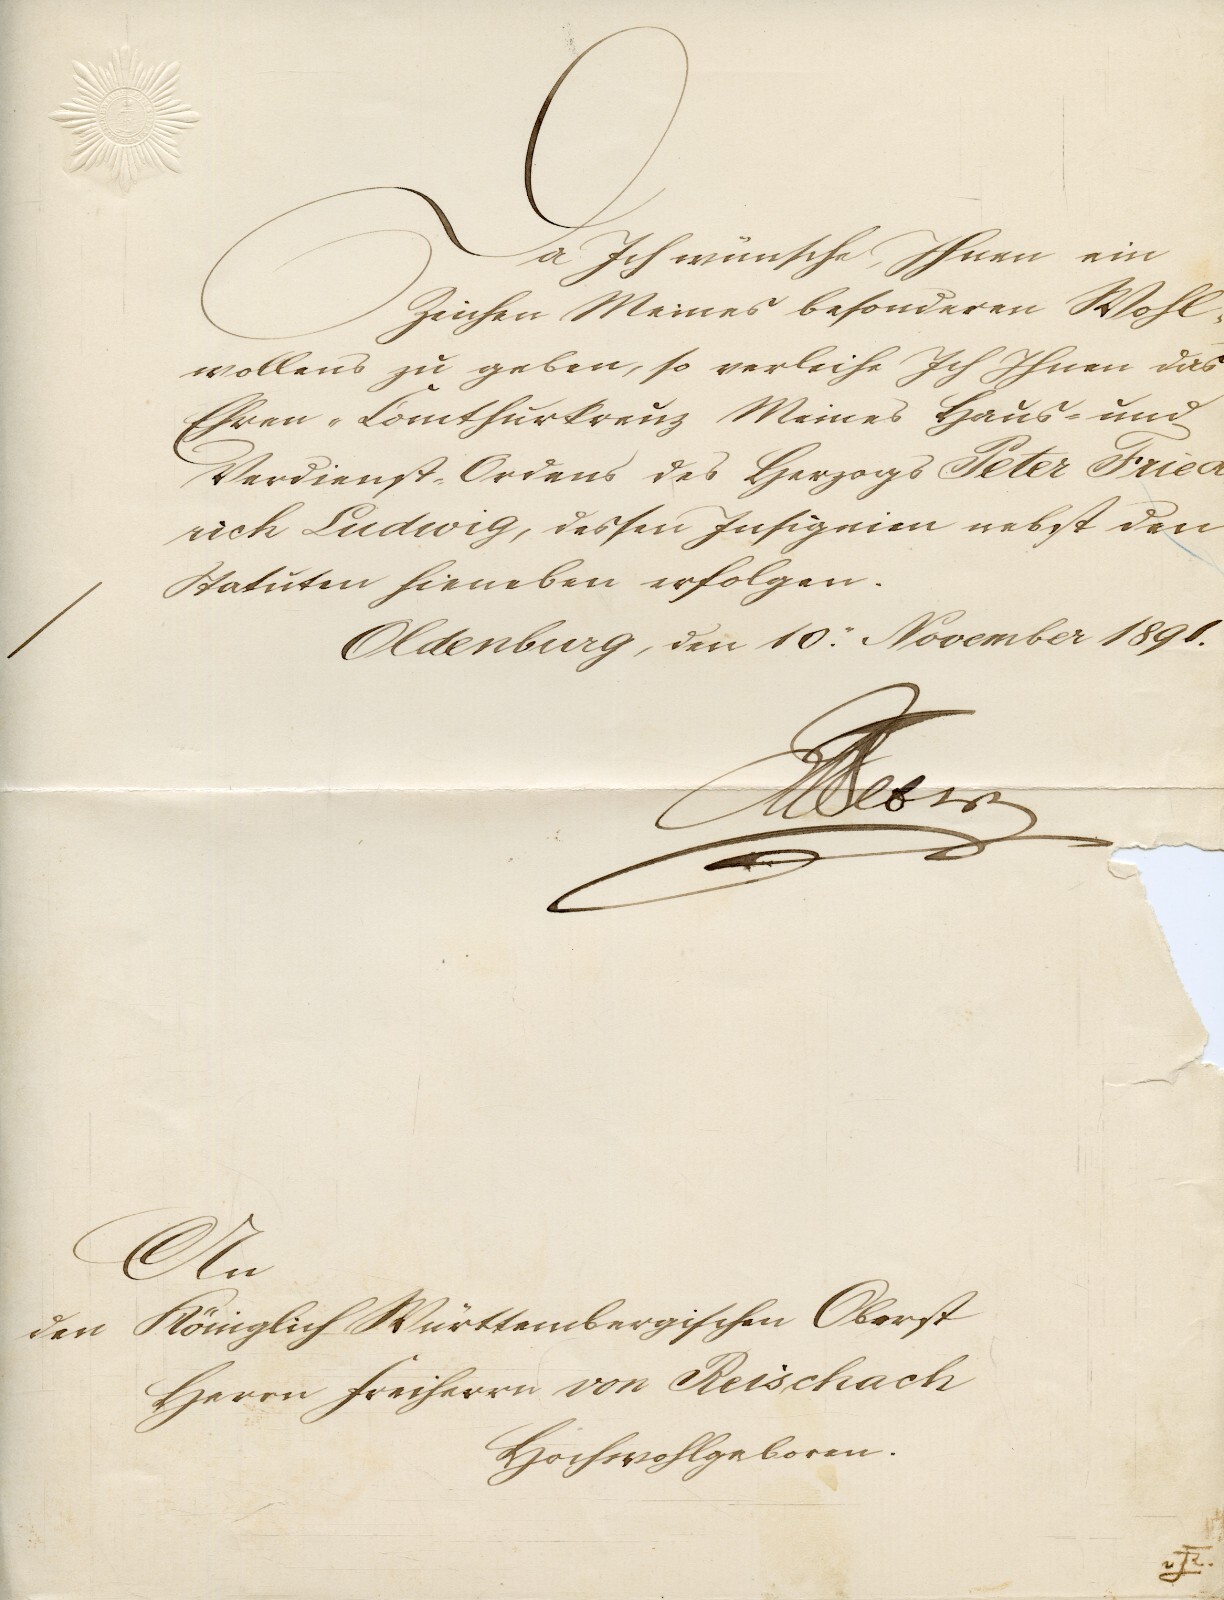 Da Ich wünsche, Ihnen ein
Zeichen Meines besonderen Wohl-
wollens zu geben, so verleihe Ich Ihnen das
Ehren-Comthurkreuz Meines Haus- und
Verdienst-Ordens des Herzogs Peter Fried
rich Ludwig, dessen Insignien nebst den
Statuten hieneben erfolgen.
Oldenburg, den 10. November 1891.
An
den Königlich Württembergischen Oberst
Herrn Freiherrn von Reischach
Hochwohlgeboren.